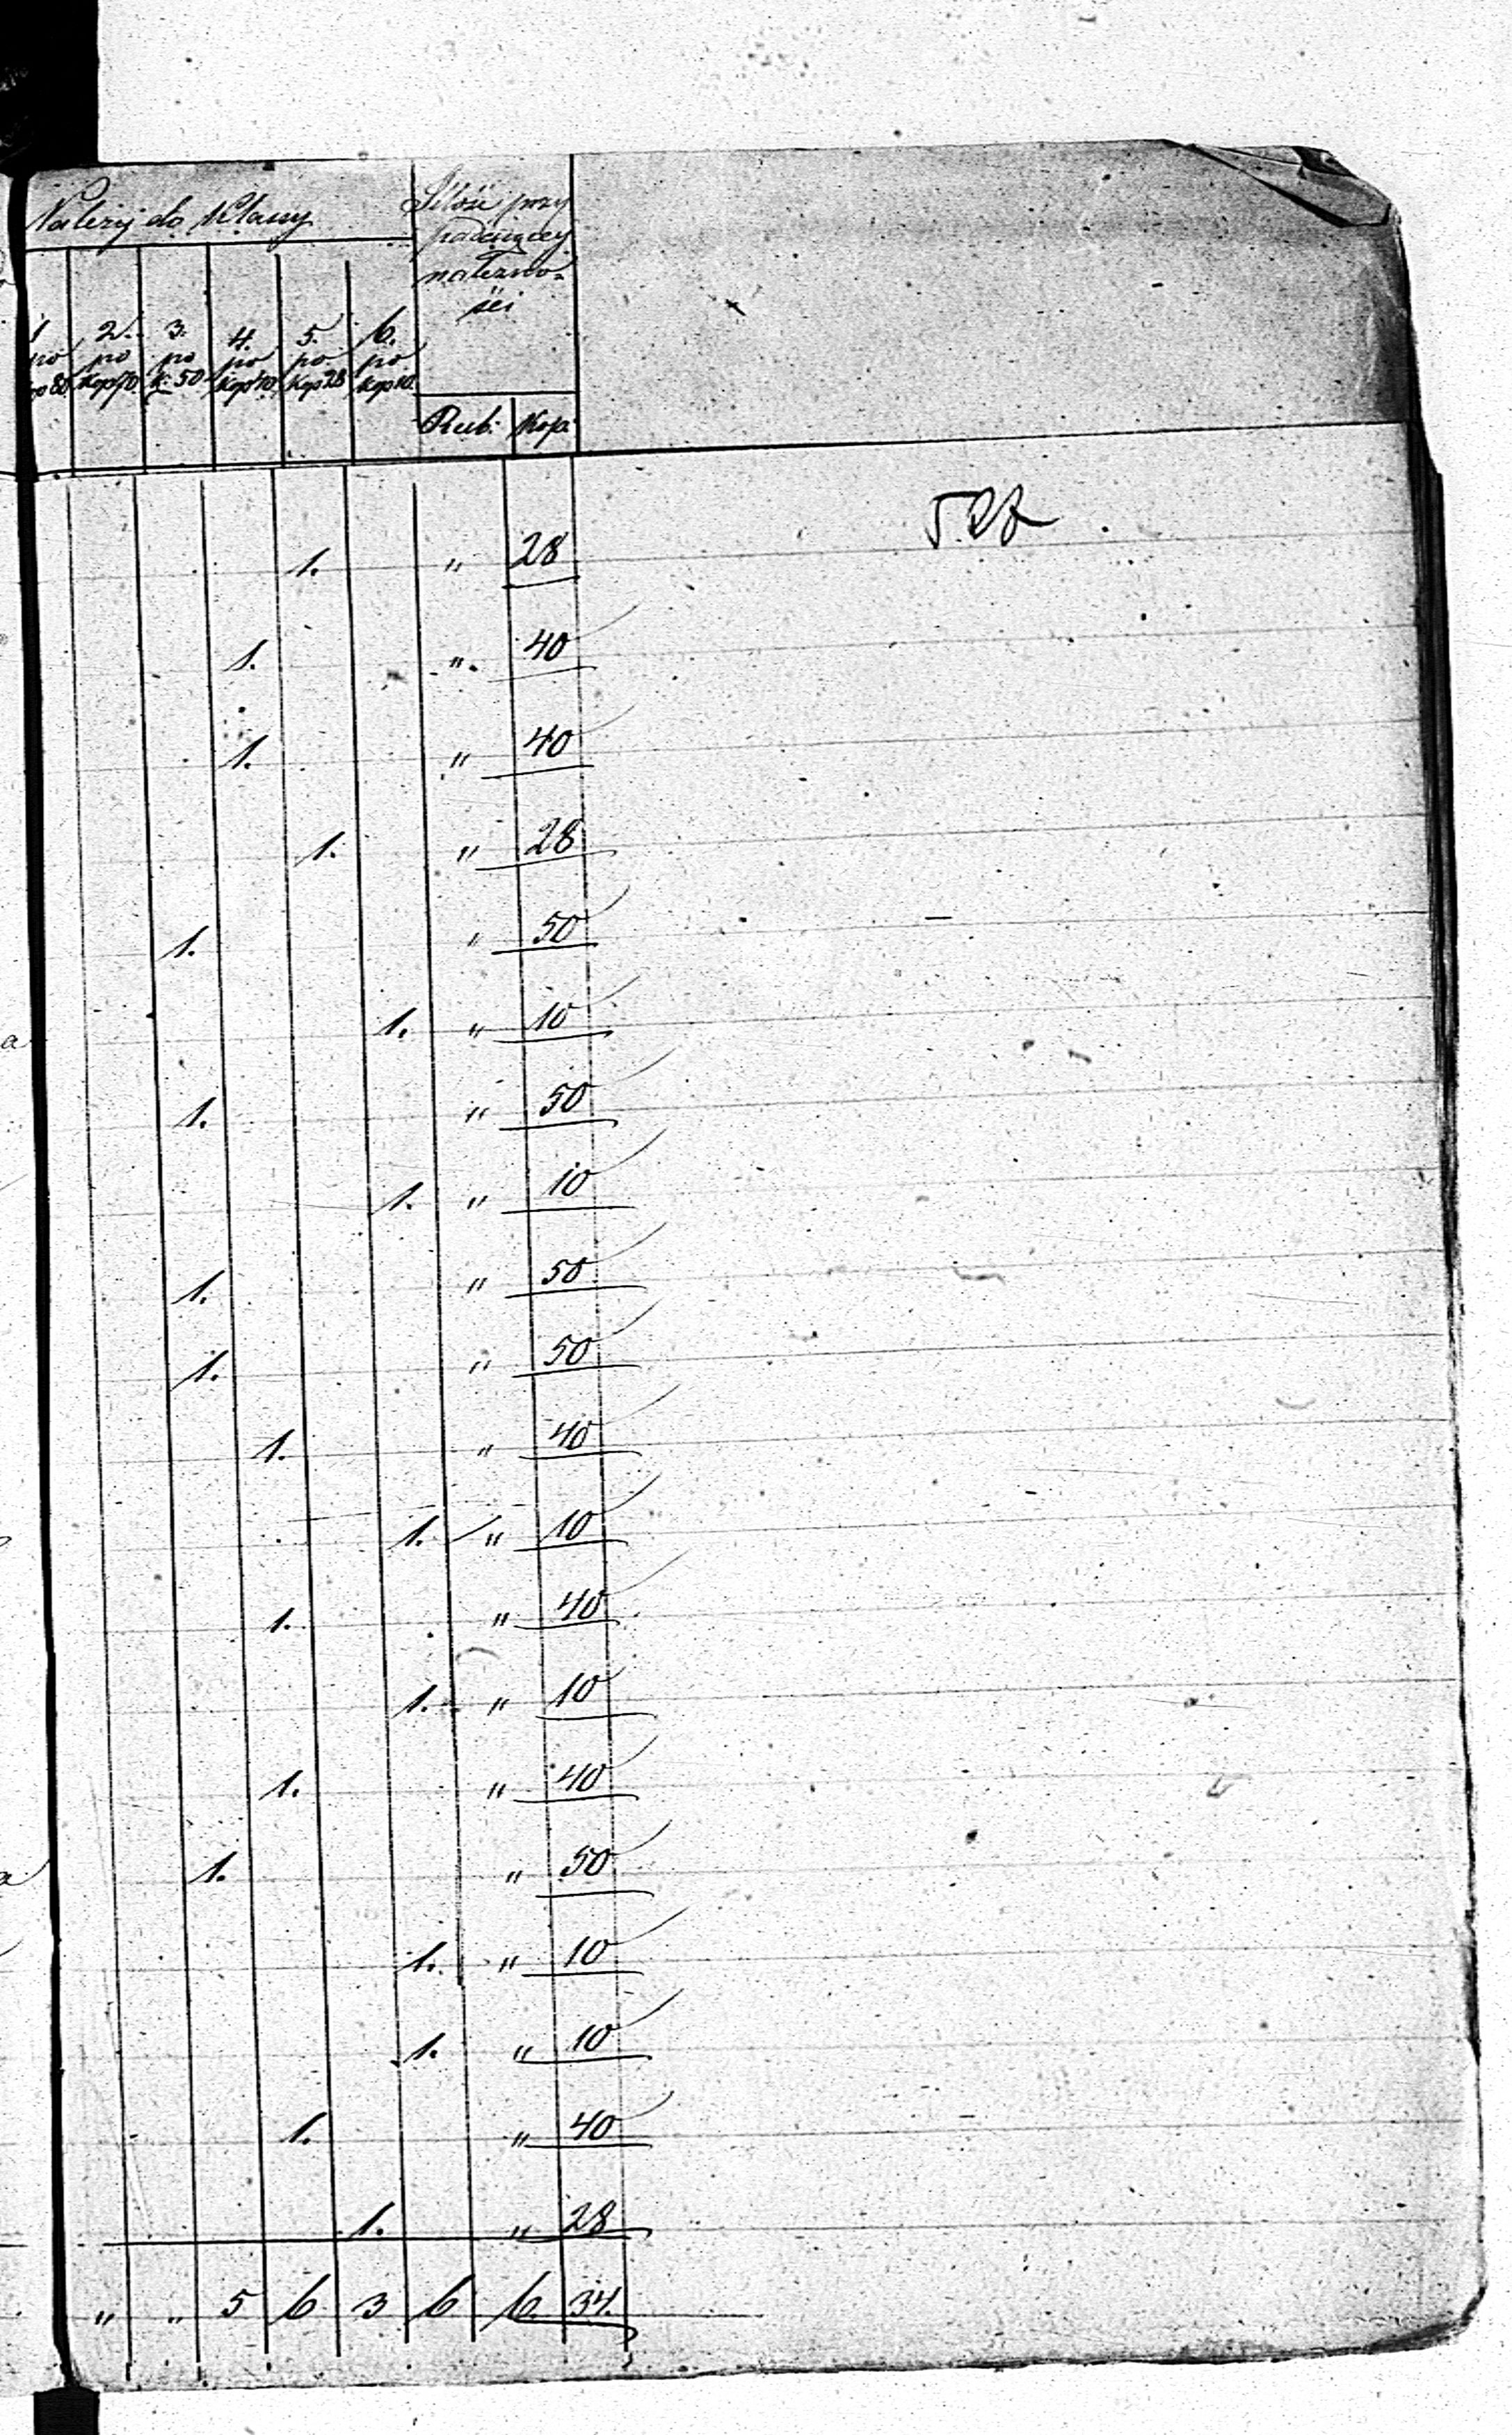 Należy do Klassy
Ilość przy
padaiącey
należno-
ści
1 2. 3. 4. 5. 6.
po po po po po po
kop 80. kop 70. k. 50 kop 40. kop 28 kop 10.
Rub: Kop:
527
1. " 28
1. " 40
1. " 40
1. " 28
1. " 50
1. " 10
1. " 50
1. " 10
1. " 50
1. " 50
1. " 40
1. " 10
1. " 40
1. " 10
1. " 40
1. " 50
1. " 10
1. " 10
1. " 40
1. " 28
" " 5 6 3 6 6. 34.